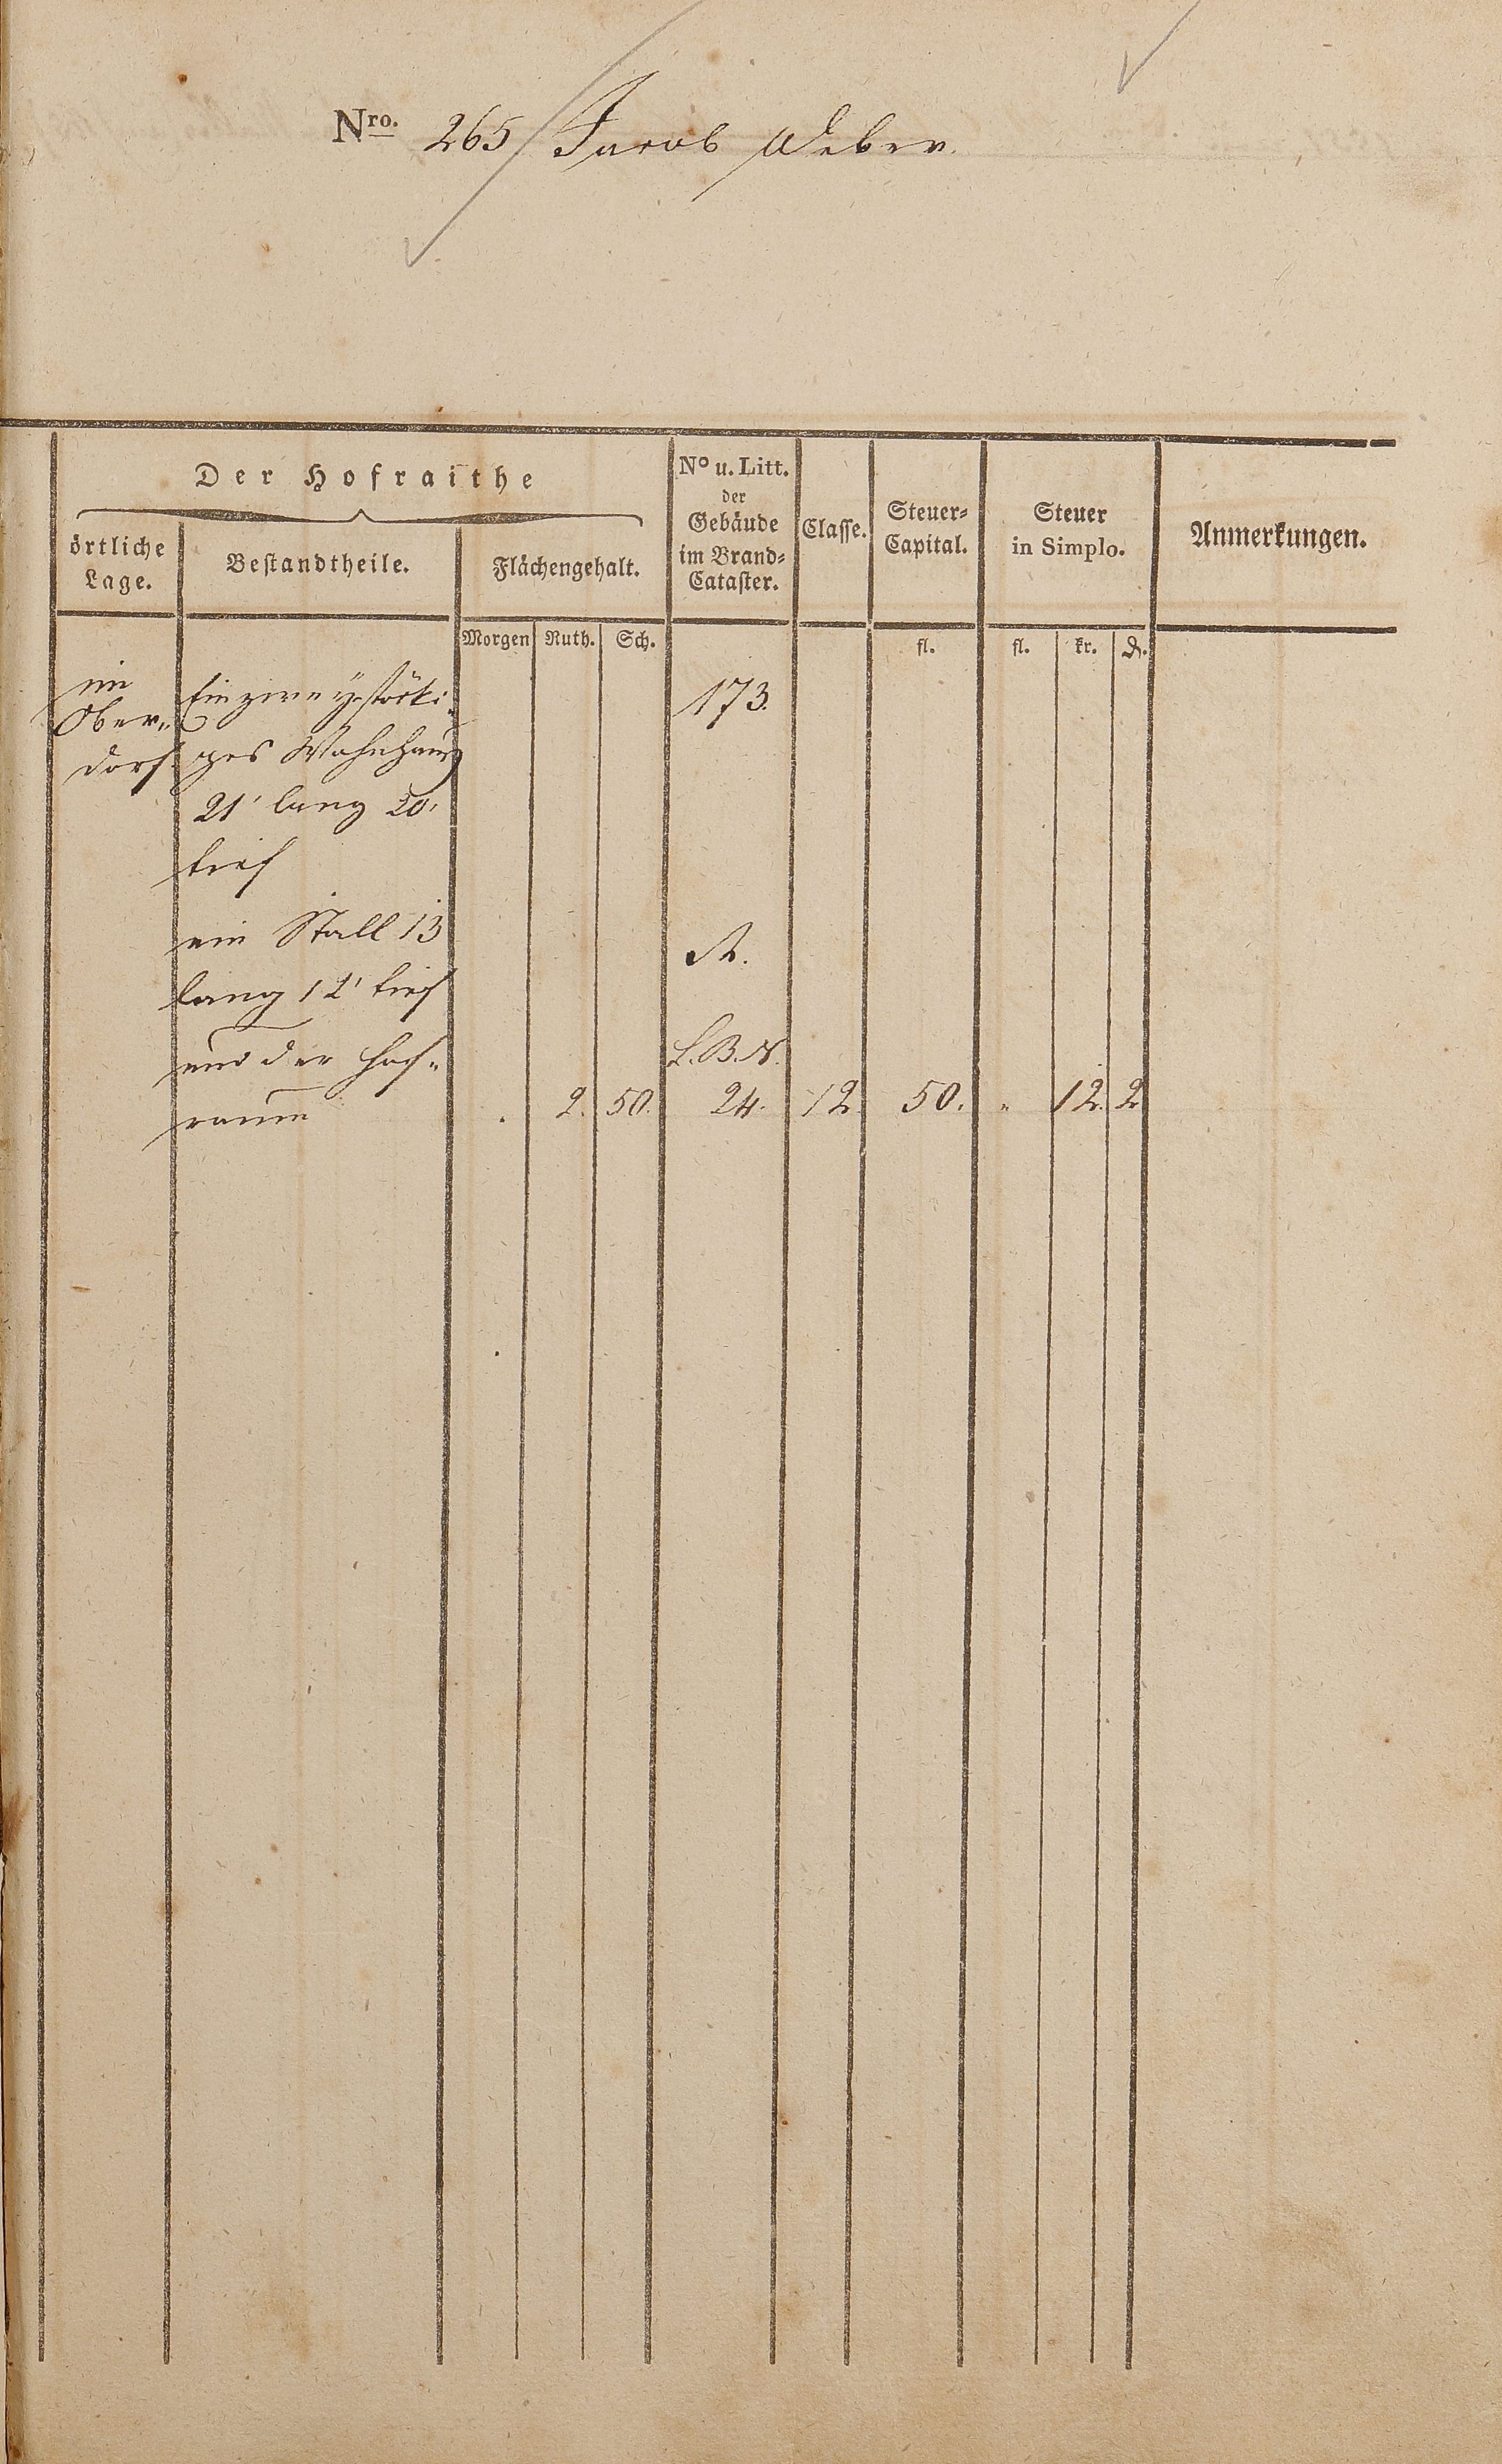 Nro. 265 Jacob Weber.
Der Hofraithe
örtliche Lage.
Bestandtheile.
Flächengehalt.
No u. Litt. der Gebäude im Brand-Cataster.
Classe.
Steuer-Capital.
Steuer in Simplo.
Anmerkungen.
Morgen Ruth. Sch. fl. fl. kr. d.
im
Ober-
dorf.
Ein zweystöcki-
ges Wohnhaus
21' lang 20'
tief
173.
ein Stall 13
lang 12' tief
A.
und der Hof-
raum
L. B. N.
. 2. 50. 24. 12. 50. " 12. 2